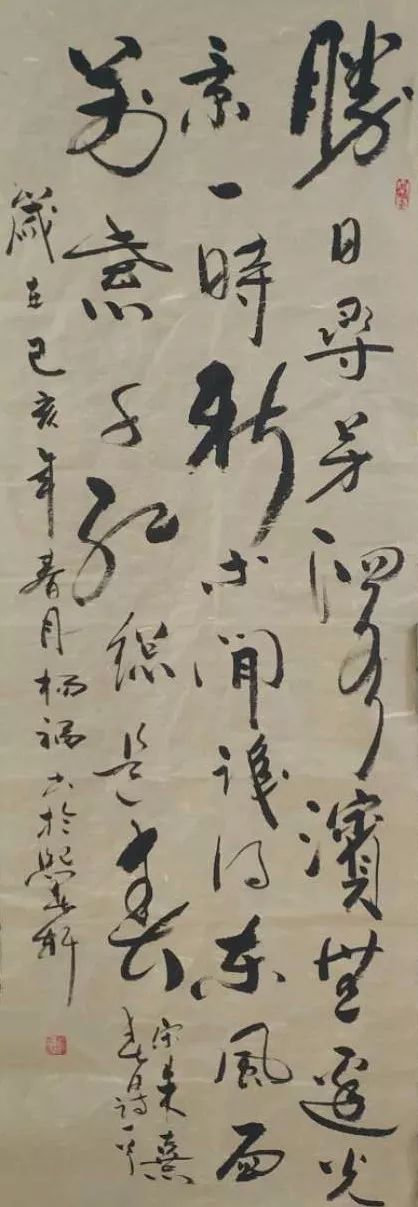 勝日尋芳泗水濱無邊光
景一時新等閒識得東風面
萬紫千紅總是春
宋朱熹
春日詩一首
歲在己亥年春月楊書於軒